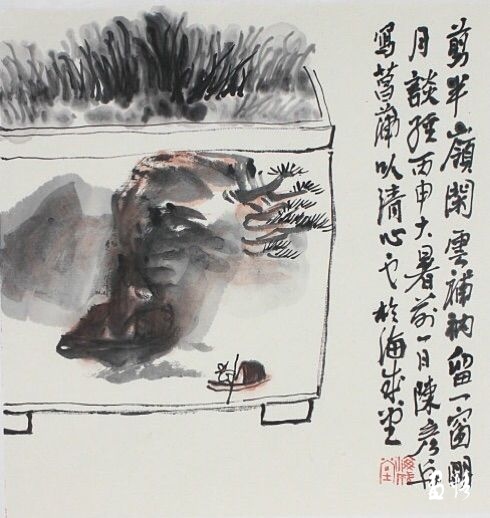 剪半嶺閑雲補衲留一窗明
月談經丙申大暑前一日陳彥
寫菖蒲以清心也於海堂